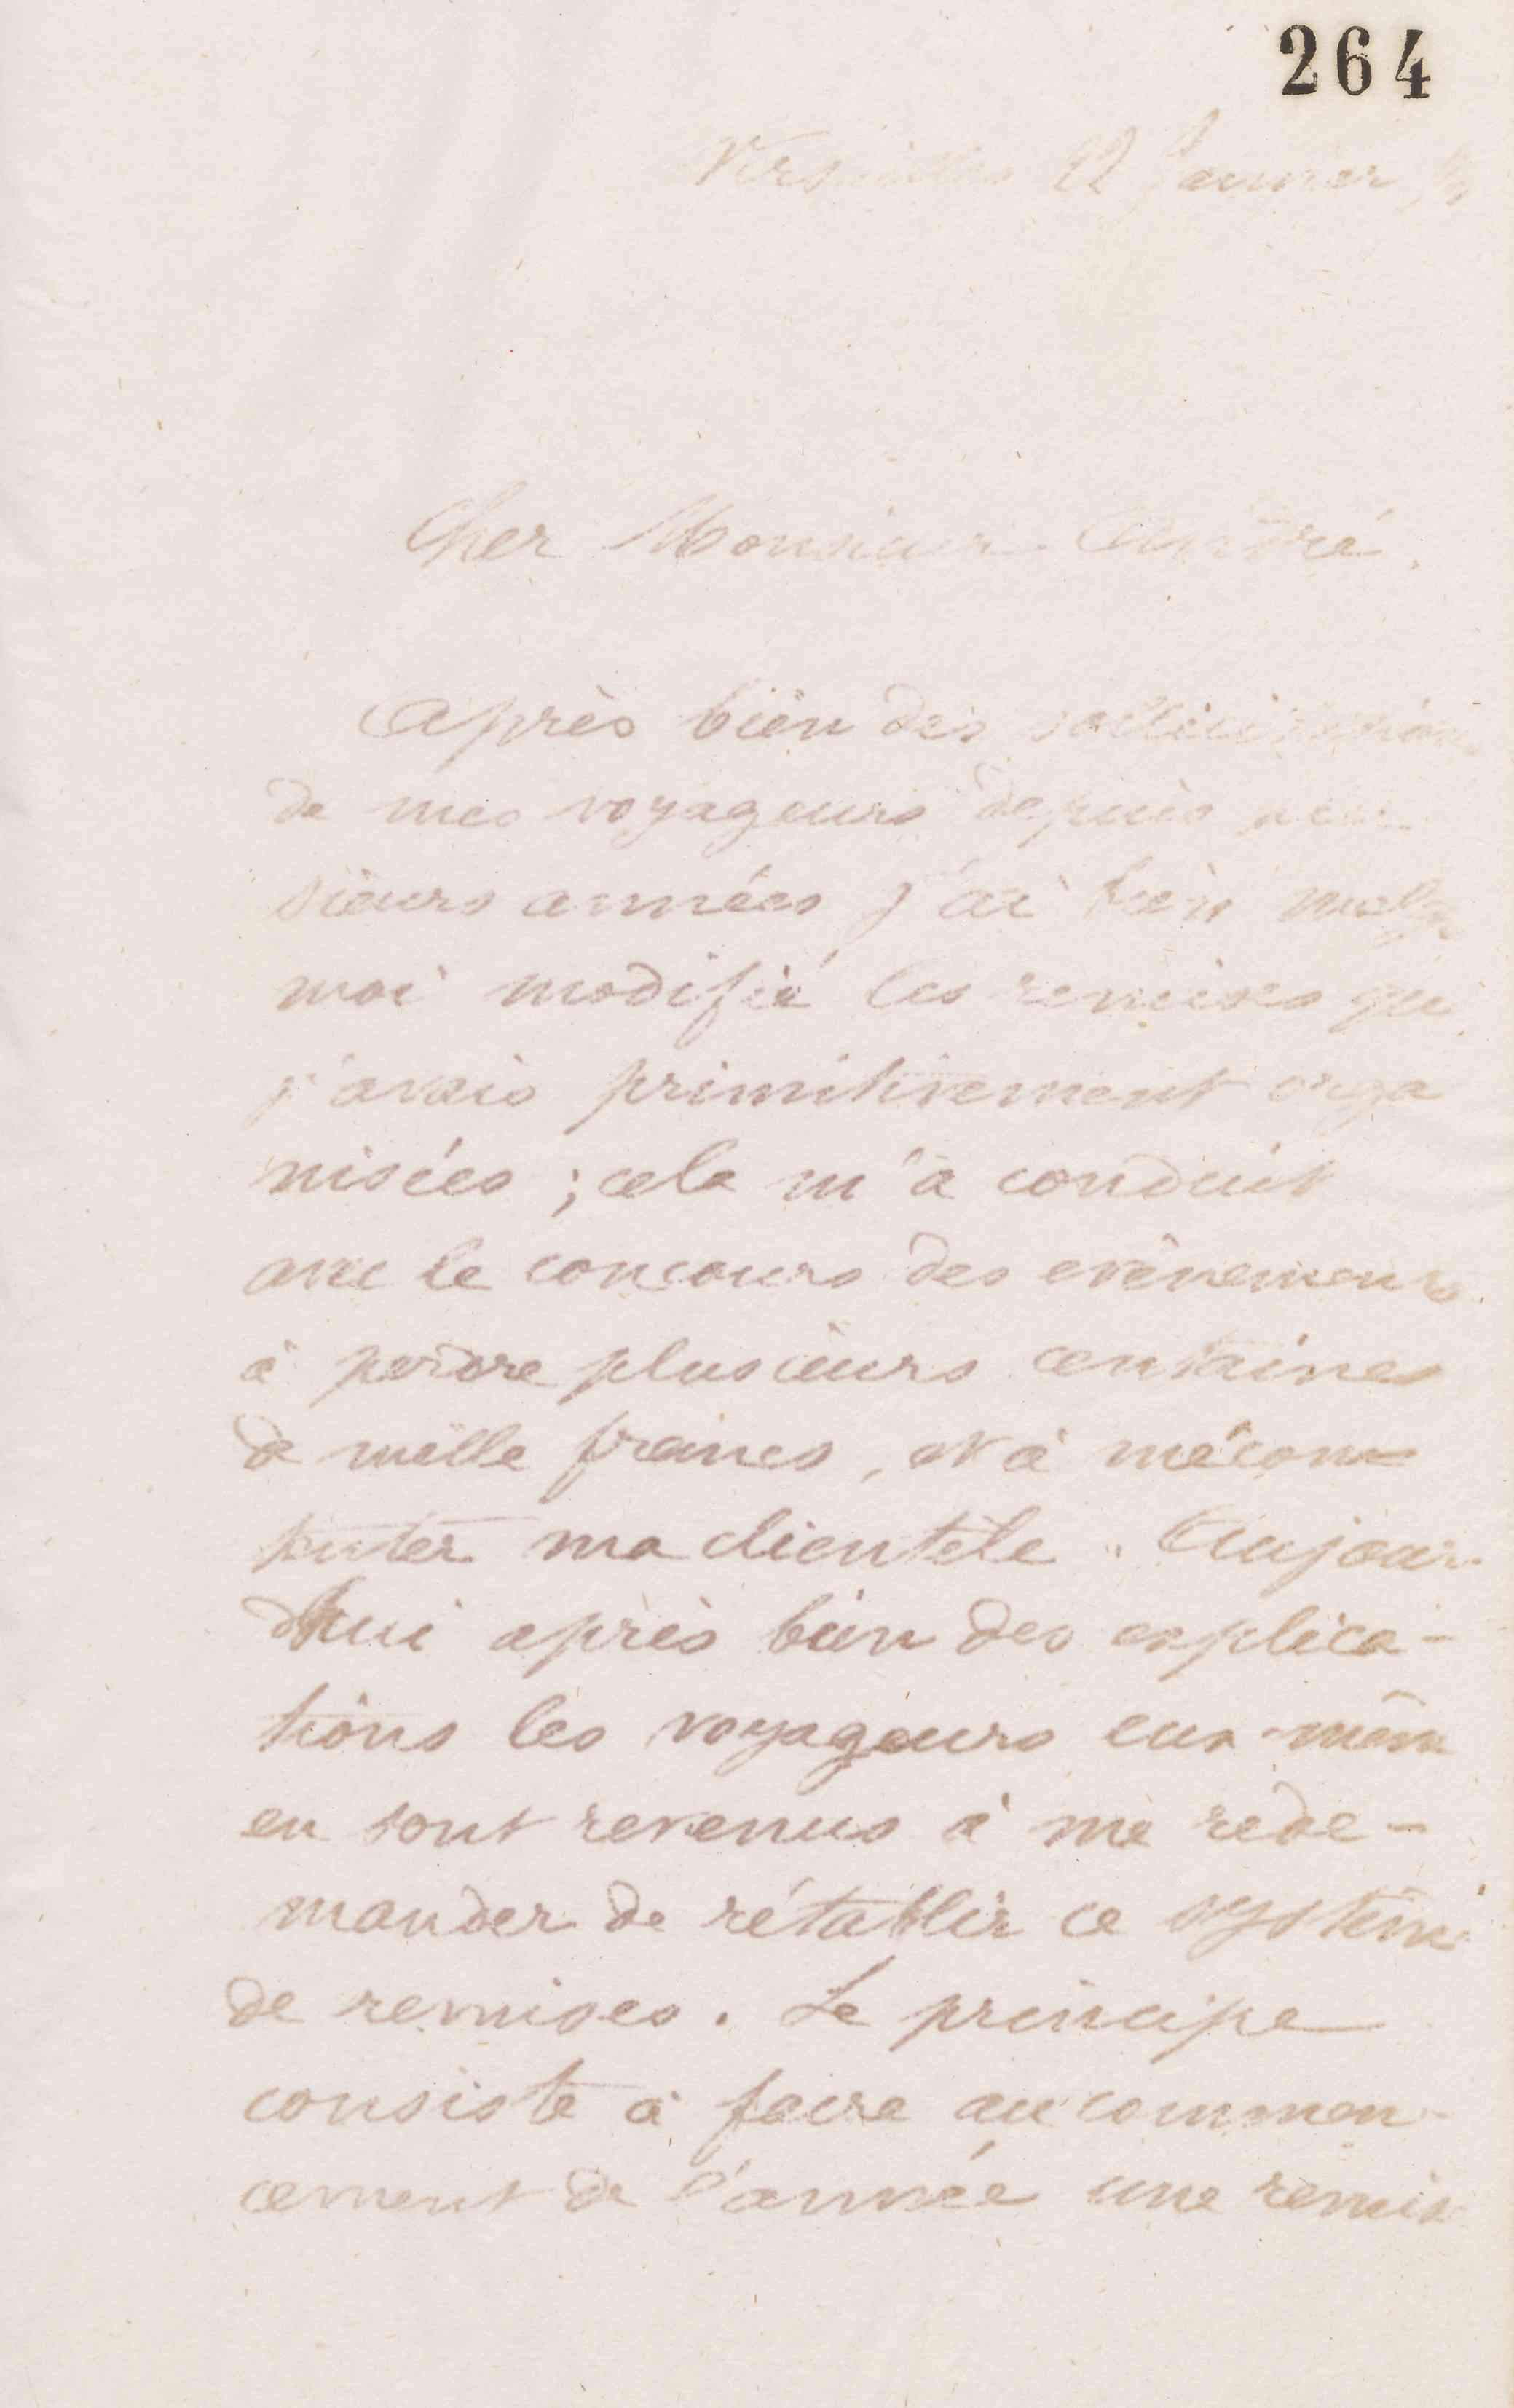 264
Versailles 22 Janvier
Cher Monsieur André.
Après bien des sollicitations
de mes voyageurs depuis plu-
sieurs années j'ai bien malgré
moi modifié les remises que
j'avais primitivement orga
nisées ; cela m'a conduit
avec le concours des evènements
à perdre plusieurs centaines
de mille francs, et à mécon-
tenter ma clientèle. Aujour-
d'hui après bien des explica-
tions les voyageurs eux-même
en sont revenus à me rede-
mander de rétablir ce système
de remises. Le principe
consiste à faire au commen-
cement de l'année une remise